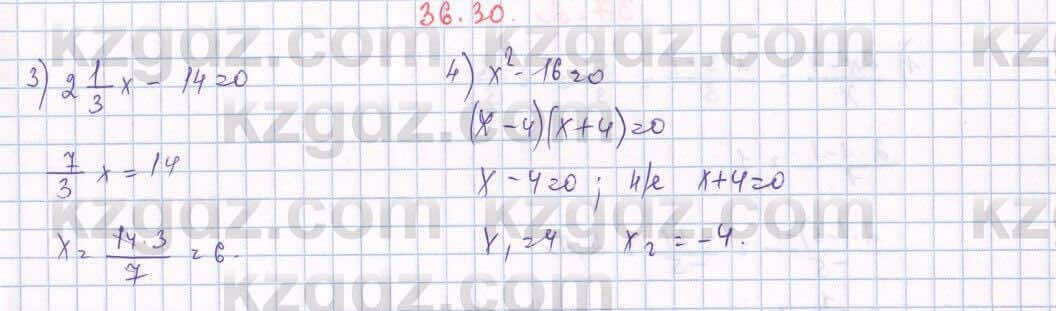 36.30.
3) 2 1/3 x - 14 = 0
7/3 x = 14
x = 14·3/7 = 6.
4) x² - 16 = 0
(x - 4)(x + 4) = 0
x - 4 = 0 ; н/е x + 4 = 0
x₁ = 4 x₂ = -4.
kzgdz.com
kzgdz.com
kz
kzgdz.com
kzgdz.com
kzgdz.com
kzgdz.com
kz
kzgdz.com
kzgdz.com